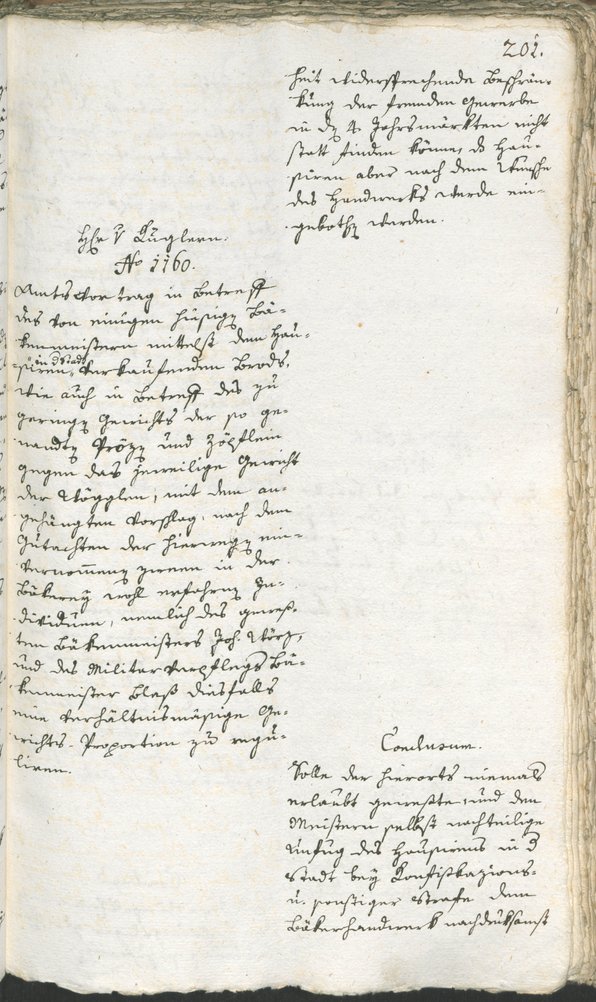 201.
heit widersprechende Beschrän-
kung der fremden Gewerbe
in dẏ 4. Jahrsmärkten nicht
statt finden könne, ds Hau-
siren aber nach dem Wunsche
des Handwerks werde ein-
gebothẏ werden.
Hhr v Kuglern.
No 1160.
Amtsvortrag in Betreff
des von einigen hiesigẏ Bä-
kenmeistern mittelst dem Hau-
siren in d Stadt verkaufenden Brods,
wie auch in Betreff des zu
geringẏ Gewichts der so ge-
nandtẏ Präzẏ und Zöpflein
gegen das jeweilige Gewicht
der Wögglen, mit dem an-
gehängten Vorschlag, nach dem
Gutachten der hierwegẏ ein-
vernommenẏ zween in der
Bäkereÿ wohl erfahrnẏ In-
dividuen, nemlich des gewes-
ten Bäkenmeisters Joh.
und des Militar Verpflegs Bä-
kenmeister Bleß diesfalls
eine verhältnismäsige Ge-
wichts-Proportion zu regu-
liren.
Conclusum.
Solle der hierorts niemals
erlaubt geweßte, und den
Meistern selbst nachteilige
Unfug des Hausirens in d
Stadt beÿ Konfiskazions-
u. sonstiger Strafe dem
Bäkerhandwerk nachdruksamst